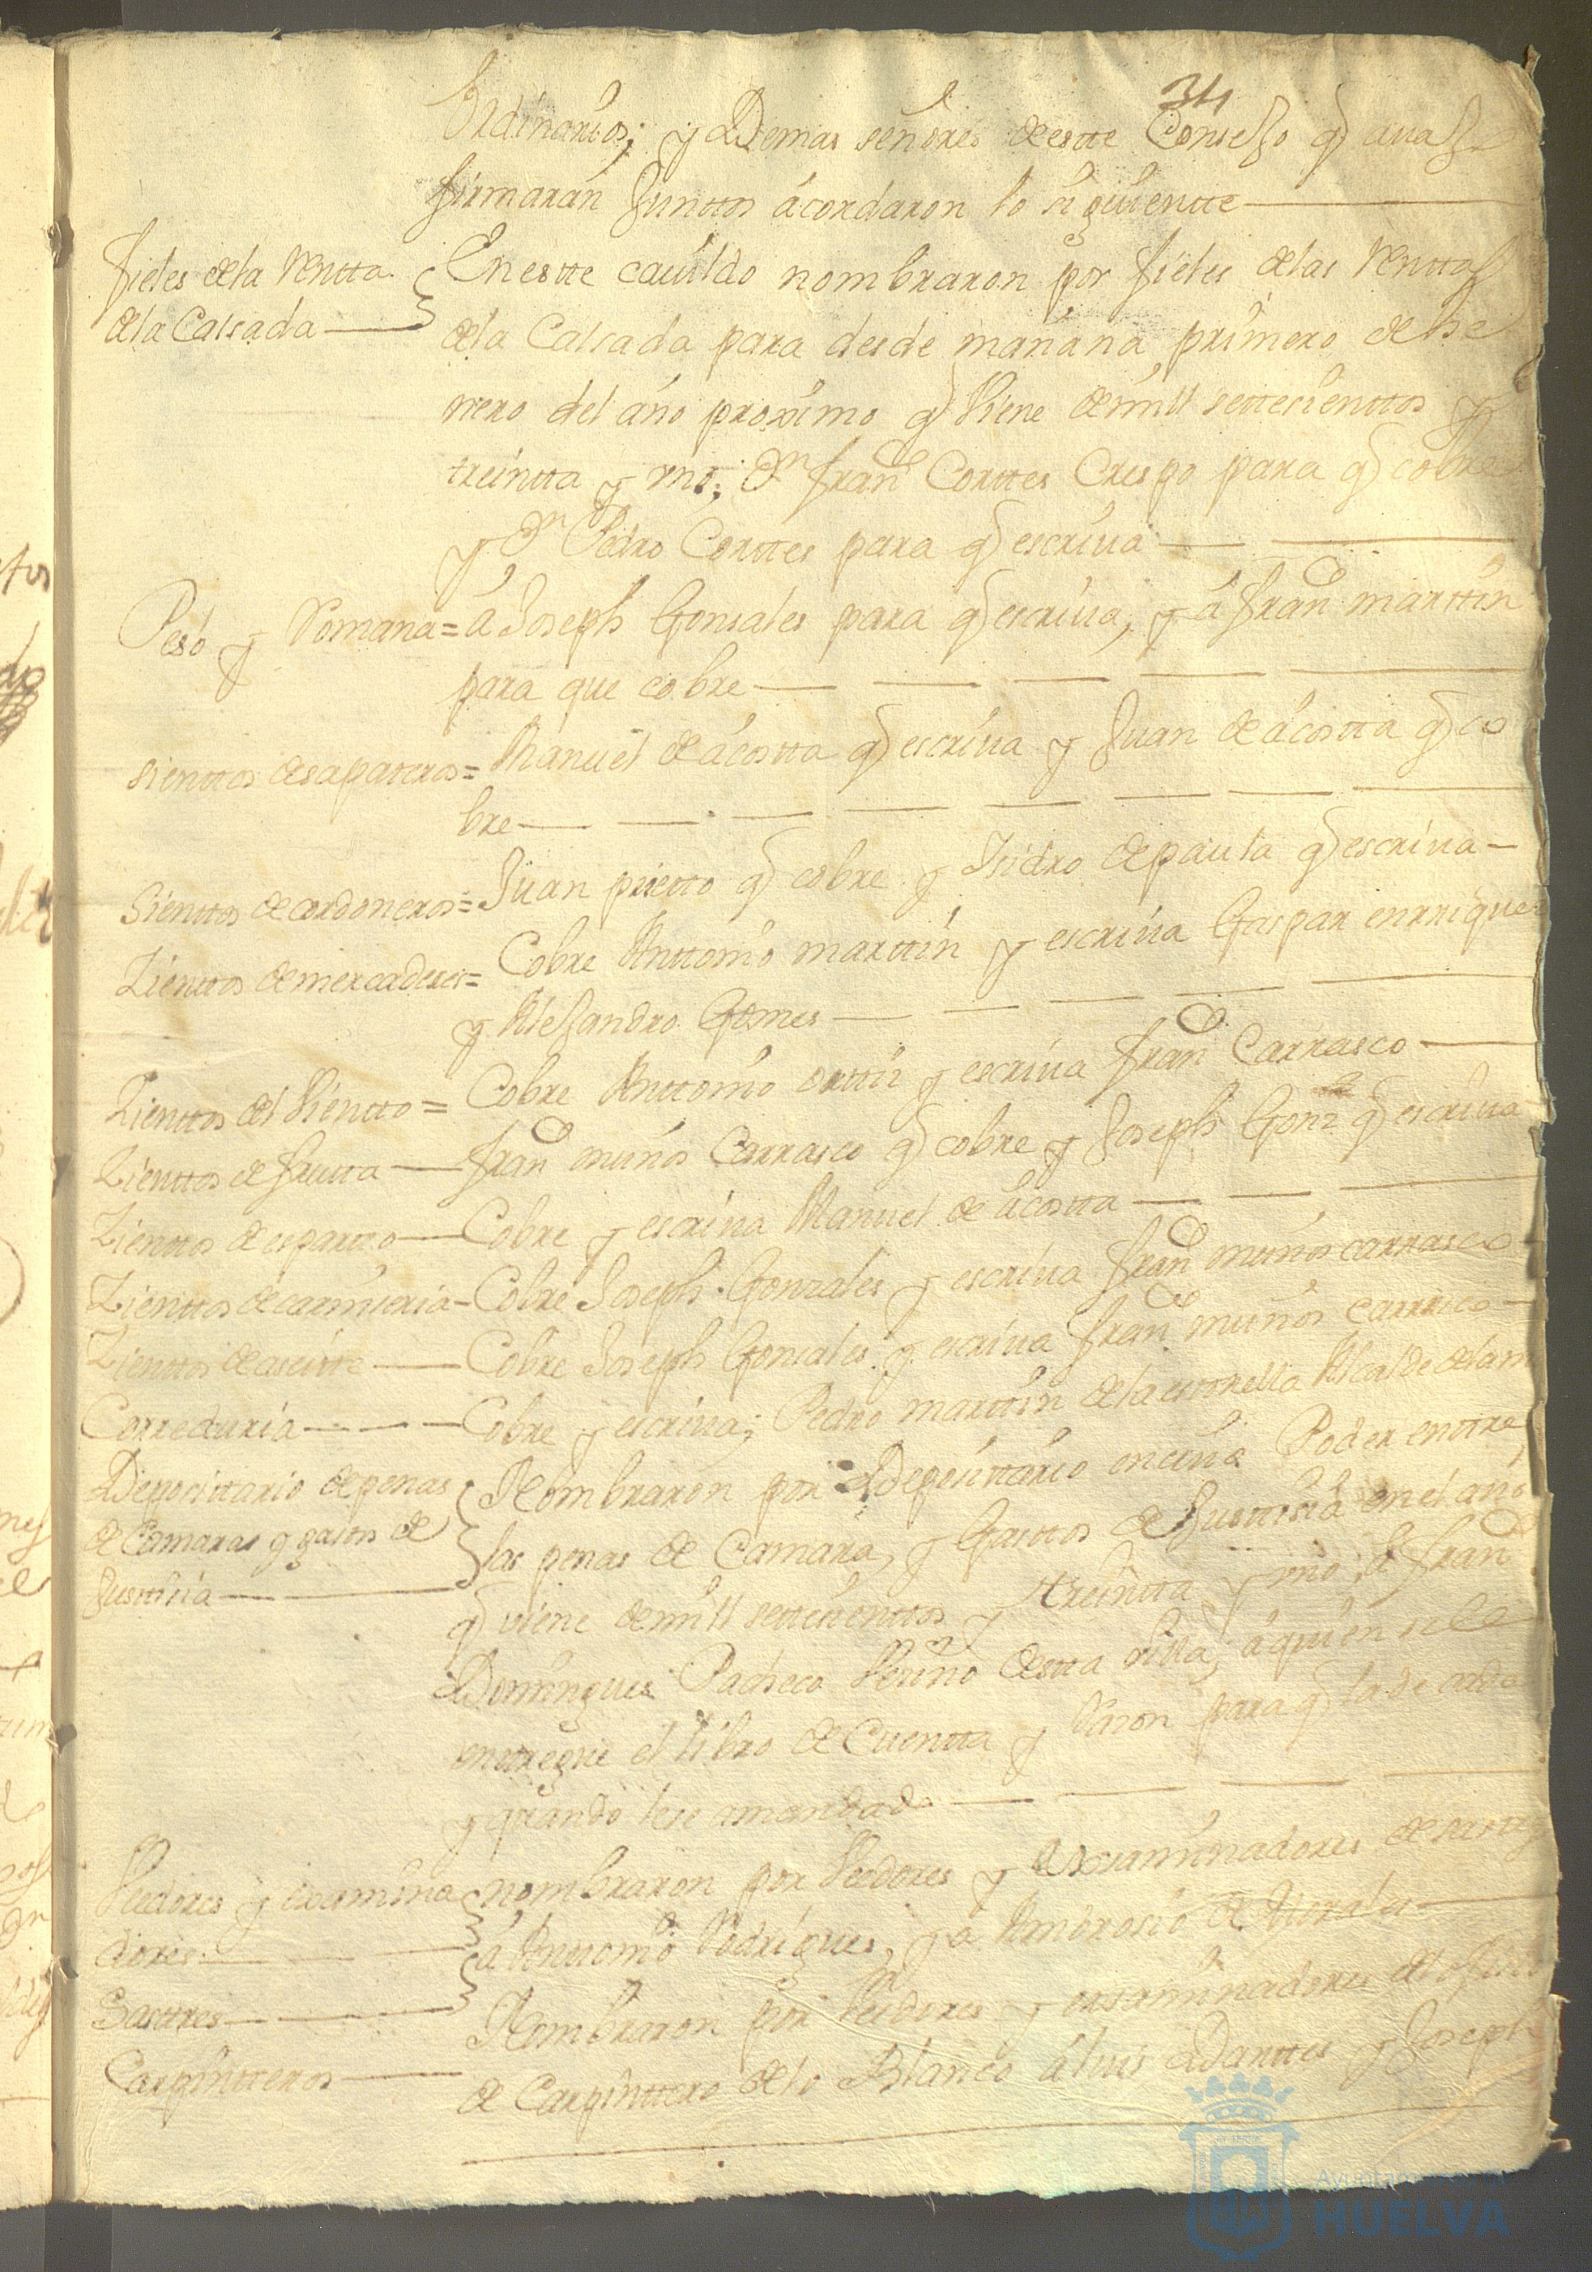 34
Ordinarios; y Demas señores de estte Consejo q avajo
firmaran Junttos ácordaron lo siguientte
fieles dela Rentta
dela Calsada
En estte cavildo nombraron por fieles delas Renttas
dela Calsada para desde mañana primero de he
nero del año proximo q Viene de mill settesienttos y
treintta y uno; Dn Franco Corttes Crespo para q cobre
y Dn Pedro Corttes para q escriva
Peso y Romana = á Joseph Gonsales para q escriva, y á Franco marttin
para que cobre
sienttos de sapateros = Manuel de ácostta q escriva y Juan de ácostta q co
bre
Sienttos de cordoneros = Juan prietto q cobre y Isidro de paula q escriva
Zienttos de mercaderes = Cobre Anttonio marttin y escriva Gaspar enrriques
y Alejandro Gomes
Zienttos del Vientto = Cobre Anttonio orttiz y escriva Franco Carrasco
Zienttos de frutta — Franco muños Carrasco q cobre y Joseph Gonz q escriva
Zienttos de espartto — Cobre y escriva Manuel de ácostta
Zienttos de carniseria — Cobre Joseph Gonzales y escriva Franco muños carrasco
Zienttos de aseitte — Cobre Joseph Gonsales y escriva Franco muños
Correduria — Cobre y escriva; Pedro marttin dela esttrella Alcalde
Deposittario de penas
de Camaras y gastos de
Justtisia
Nombraron por Deposittario en cuio Poder enttre
las penas de Camara, y Gasttos de Justtisia en el año
q viene de mill settesienttos y treintta y uno; á Franco
Domingues Pacheco Vesino destta villa; á quien se le
enttregue el libro de Cuentta y Rason para q la de cada
y quando le se a mandado
Veedores y examina
dores
Sasttres
nombraron por Veedores y Examinadores de sasttres
á Anttonio Rodrigues, y á Ambrosio de Morales
Carpintteros
Nombraron por Veedores y examinadores del ofisio
de Carpinttero de lo Blanco á luis Danttes y Joseph
Ayuntamiento de
HUELVA